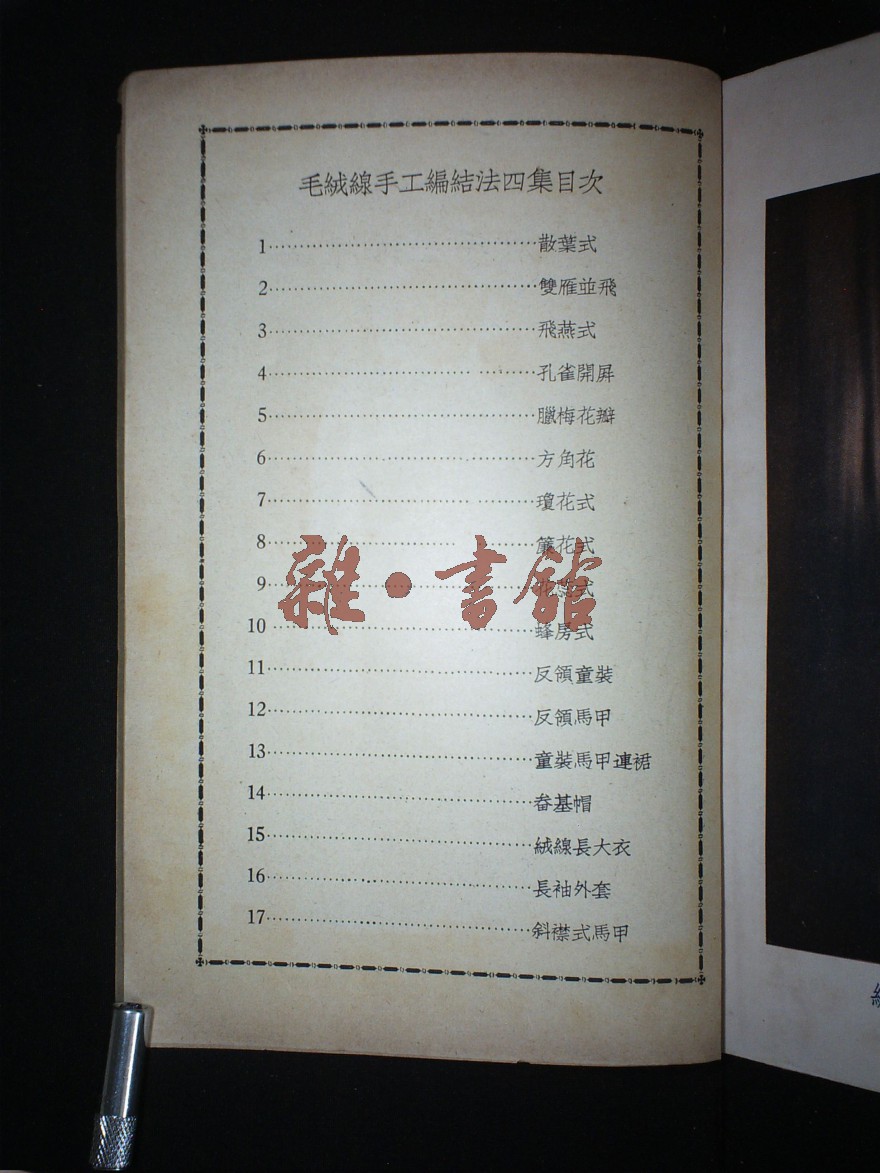 毛絨線手工編結法四集目次
1 散葉式
2 雙雁並飛
3 飛燕式
4 孔雀開屏
5 臘梅花瓣
6 方角花
7 瓊花式
8 簾花式
9 式
10 蜂房式
11 反領童裝
12 反領馬甲
13 童裝馬甲連裙
14 畚基帽
15 絨線長大衣
16 長袖外套
17 斜襟式馬甲
雜·書館